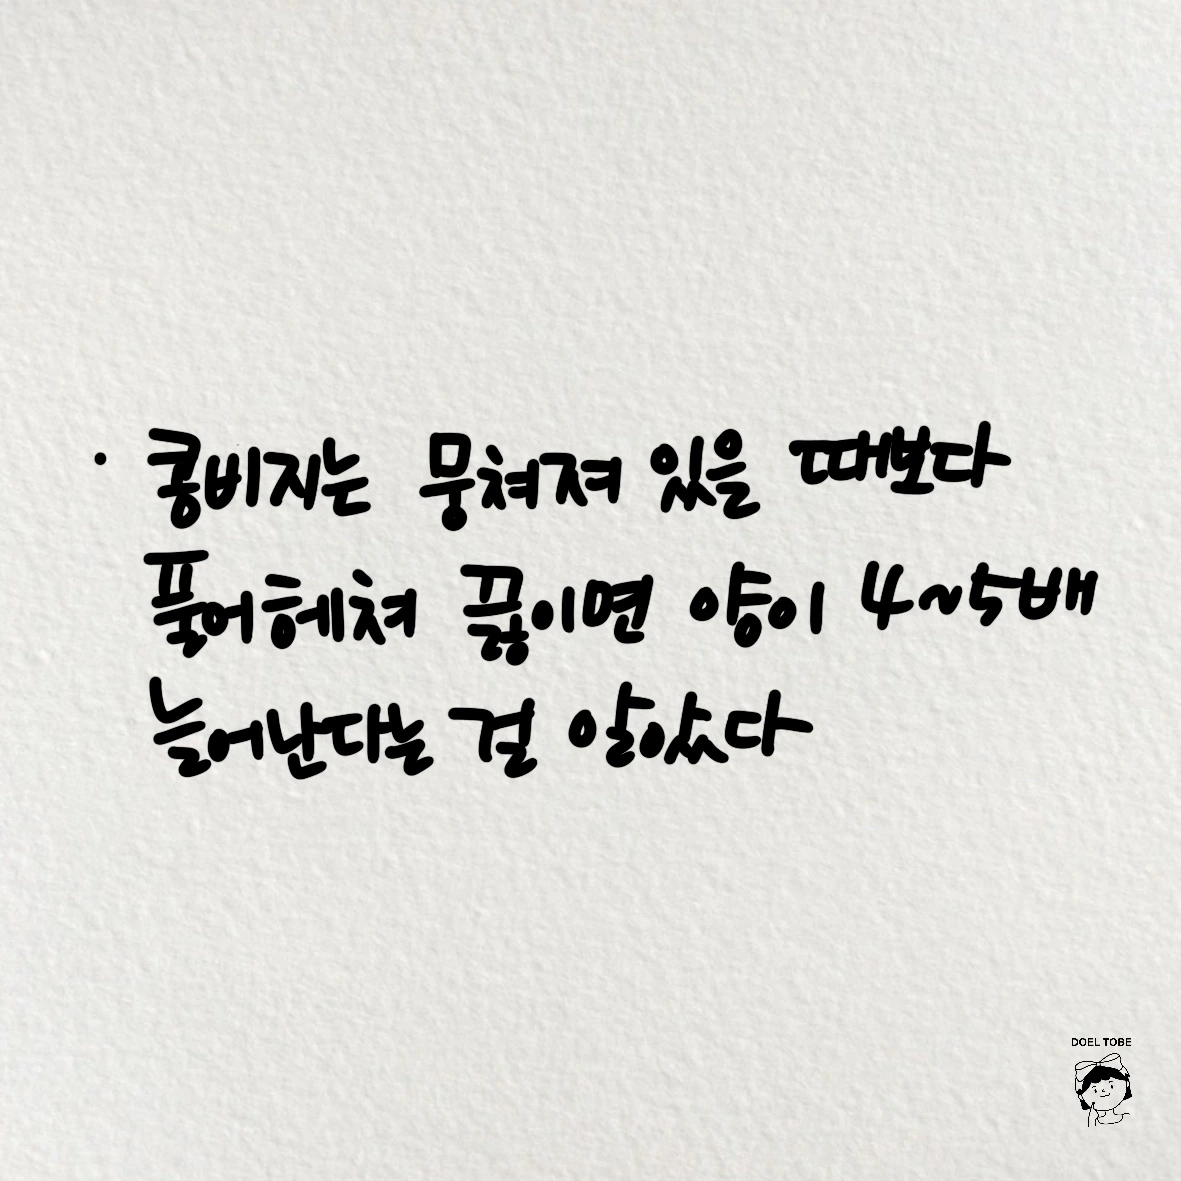 · 콩비지는 뭉쳐져 있을 때보다
풀어헤쳐 끓이면 양이 4~5배
늘어난다는 걸 알았다
DOEL TOBE